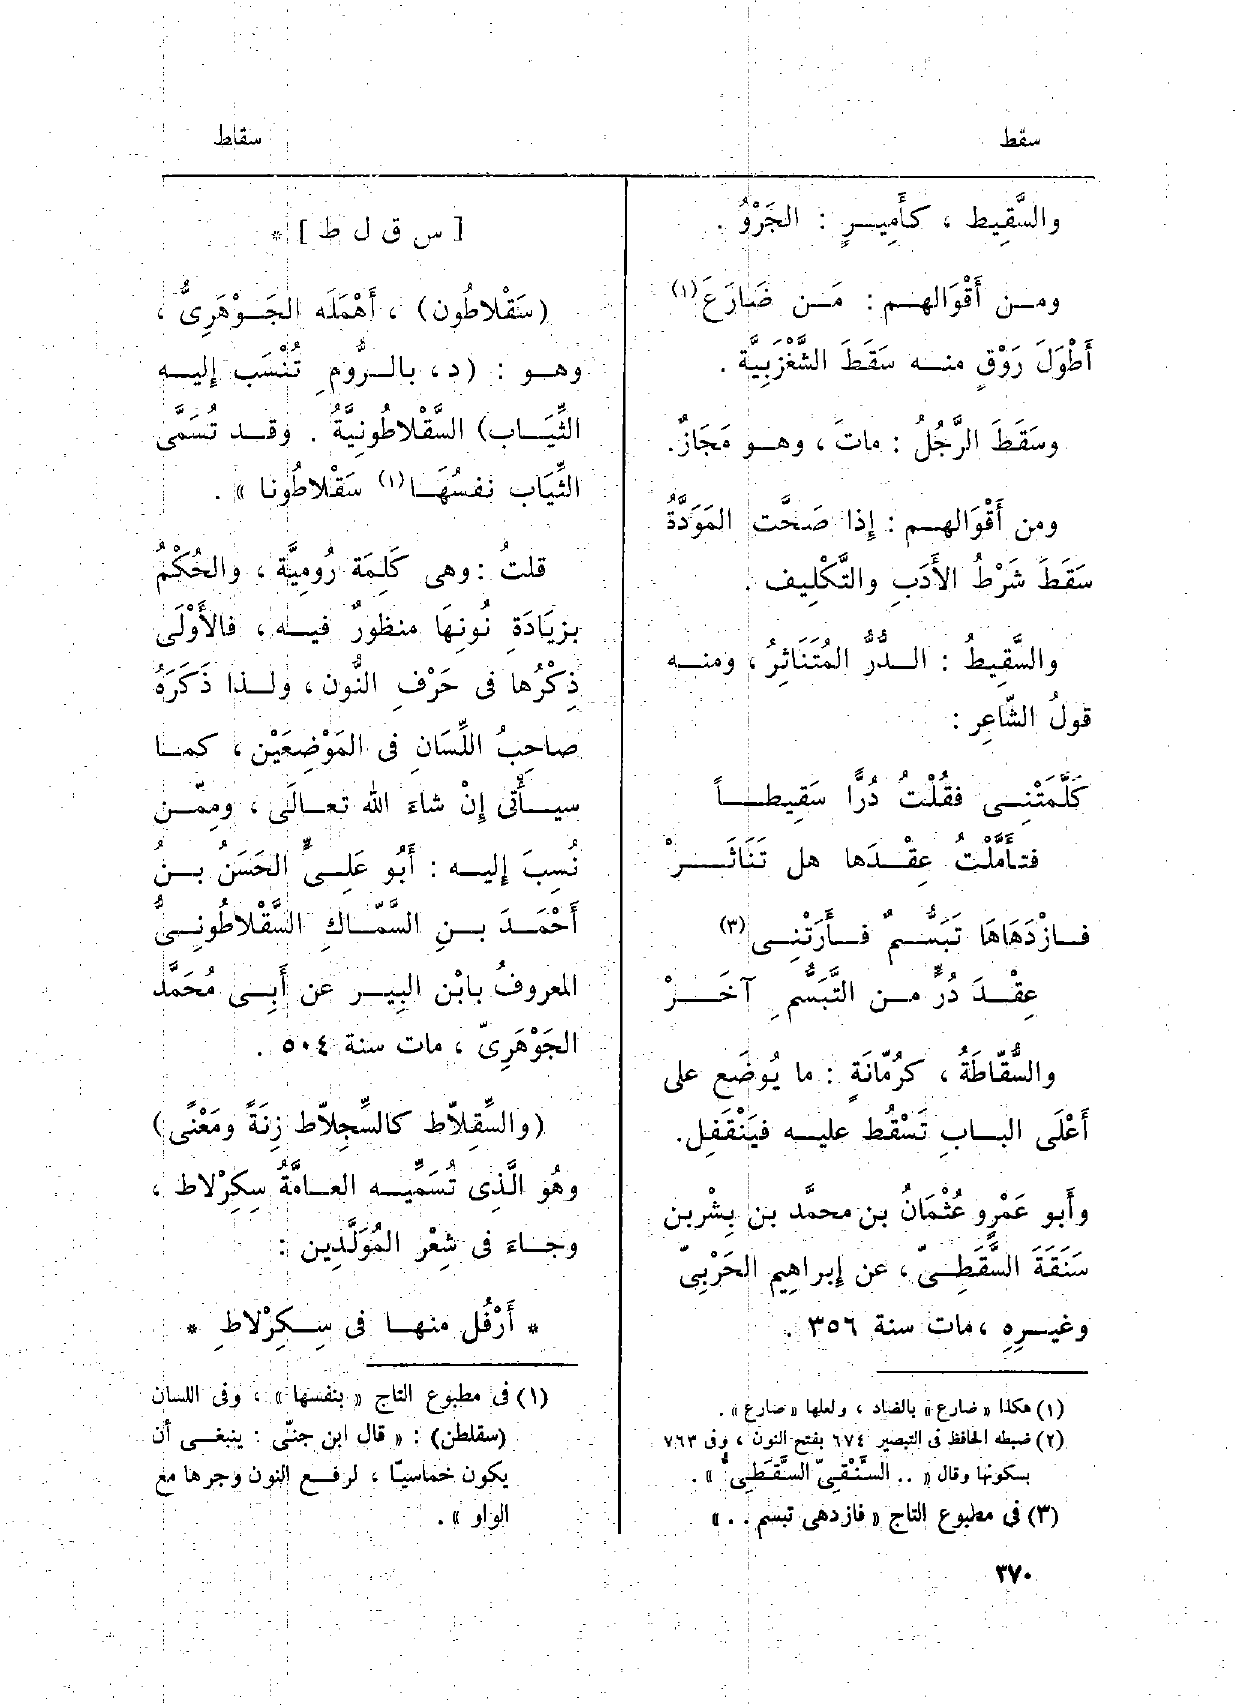 سقط
سقلط
والسَّقِيط ، كأَمِيرٍ : الجَرْوُ .
ومن أَقْوَالهم : مَن ضَارَعَ(١)
أَطْوَلَ رَوْقٍ منه سَقَطَ الشَّغْزَبِيَّة .
وسَقَطَ الرَّجُلُ : ماتَ ، وهو مَجَازٌ.
ومن أَقْوَالهم : إِذا صَحَّت المَوَدَّةُ
سَقَطَ شَرْطُ الأَدَبِ والتَّكْلِيف .
والسَّقِيطُ : الدُّرُّ المُتَنَاثِرُ ، ومنه
قولُ الشّاعِر :
كَلَّمَتْنِى فقُلْتُ دُرًّا سَقِيطاً
فتأَمَّلْتُ عِقْدَها هل تَنَاثَرْ
فازْدَهَاهَا تَبَسُّمٌ فأَرَتْنِى(٣)
عِقْدَ دُرٍّ من التَّبَسُّمِ آخَرْ
والسُّقّاطَةُ ، كرُمّانَةٍ : ما يُوضَع على
أَعْلَى البابِ تَسْقُط عليه فيَنْقَفِل.
وأَبو عَمْرٍو عُثْمَانُ بن محمَّد بن بِشْر بن
سَنَقَةَ السَّقَطِىّ ، عن إِبراهِيم الحَرْبِىّ
وغيرِه ، مات سنة ٣٥٦ .
(١) هكذا « ضارع » بالضاد ، ولعلها « صارع » .
(٢) ضبطه الحافظ فى التبصير ٦٧٤ بفتح النون ، وفى ٧٦٣
بسكونها وقال « .. السَّنْقِىّ السَّقَطِىُّ » .
(٣) فى مطبوع التاج « فازدهى تبسم .. »
[ س ق ل ط ] *
(سَقْلاطُون) ، أَهْمَلَه الجَوْهَرِىُّ ،
وهو : (د، بالرُّومِ تُنْسَب إِليه
الثِّيَاب) السَّقْلاطُونِيَّةُ . وقد تُسَمَّى
الثِّيَاب نفسُهَا(١) سَقْلاطُونا » .
قلتُ : وهى كَلِمَة رُومِيَّة ، والحُكْمُ
بزِيَادَةِ نُونِهَا منظورٌ فيه ، فالأَوْلَى
ذِكْرُها فى حَرْفِ النُّون ، ولذا ذَكَرَهُ
صاحِبُ اللِّسَانِ فى المَوْضِعَيْن ، كما
سيأْتى إِنْ شاءَ الله تعالَى ، ومِمّن
نُسِبَ إِليه : أَبُو عَلِىٍّ الحَسَنُ بنُ
أَحْمَدَ بنِ السَّمّاكِ السَّقْلاطُونِىُّ
المعروفُ بابْن البِير عن أَبِى مُحَمَّد
الجَوْهَرِىّ ، مات سنة ٥٠٤ .
(والسِّقِلاّط كالسِّجِلاّط زِنَةً ومَعْنًى)
وهُو الَّذِى تُسَمِّيه العامَّةُ سِكِرْلاط ،
وجاءَ فى شِعْر المُوَلَّدِين :
* أَرْفُل منها فى سِكِرْلاطِ *
(١) فى مطبوع التاج « بنفسها » ، وفى اللسان
(سقلطن) : « قال ابن جنّى : ينبغى أن
يكون خماسيّا ، لرفع النون وجرها مع
الواو » .
٣٧٠